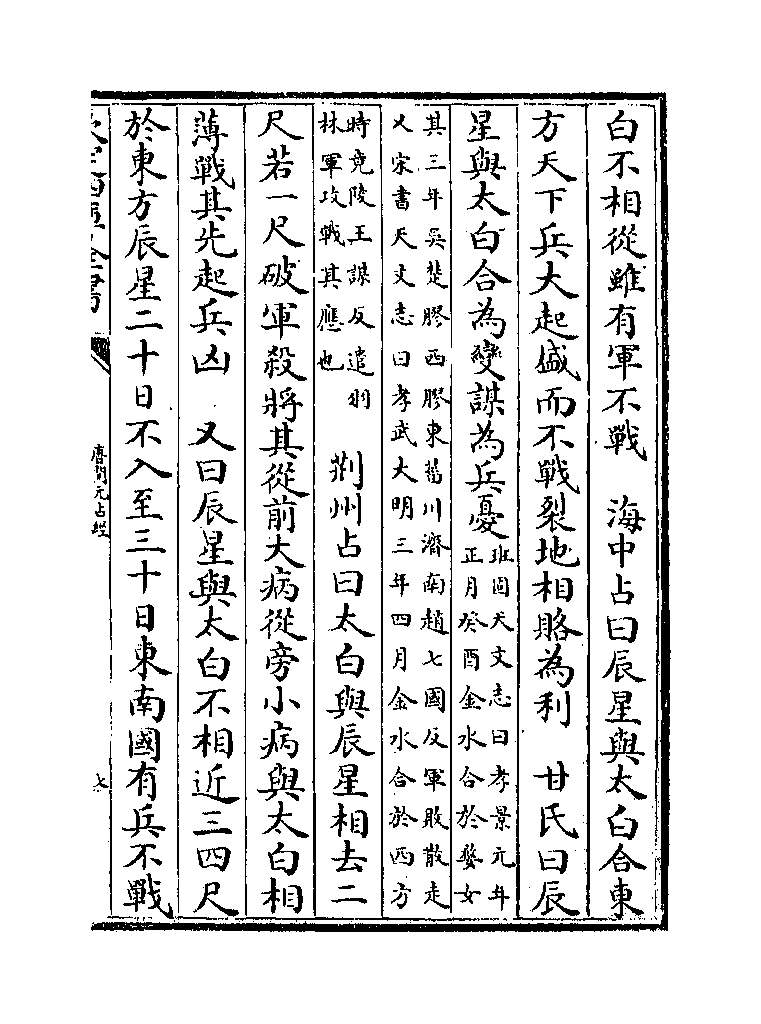 白不相從雖有軍不戰　海中占曰辰星與太白合東
方天下兵大起盛而不戰裂地相賂為利　甘氏曰辰
星與太白合為變謀為兵憂班固天文志曰孝景元年
正月癸酉金水合於婺女
其三年吳楚膠西膠東菑川濟南趙七國反軍敗散走
乂宋書天文志曰孝武大明三年四月金水合於西方
時竟陵王謀反遣羽
林軍攻戰其應也　荆州占曰太白與辰星相去二
尺若一尺破軍殺將其從前大病從旁小病與太白相
薄戰其先起兵凶　又曰辰星與太白不相近三四尺
於東方辰星二十日不入至三十日東南國有兵不戰
欽定四庫全書
唐開元占經